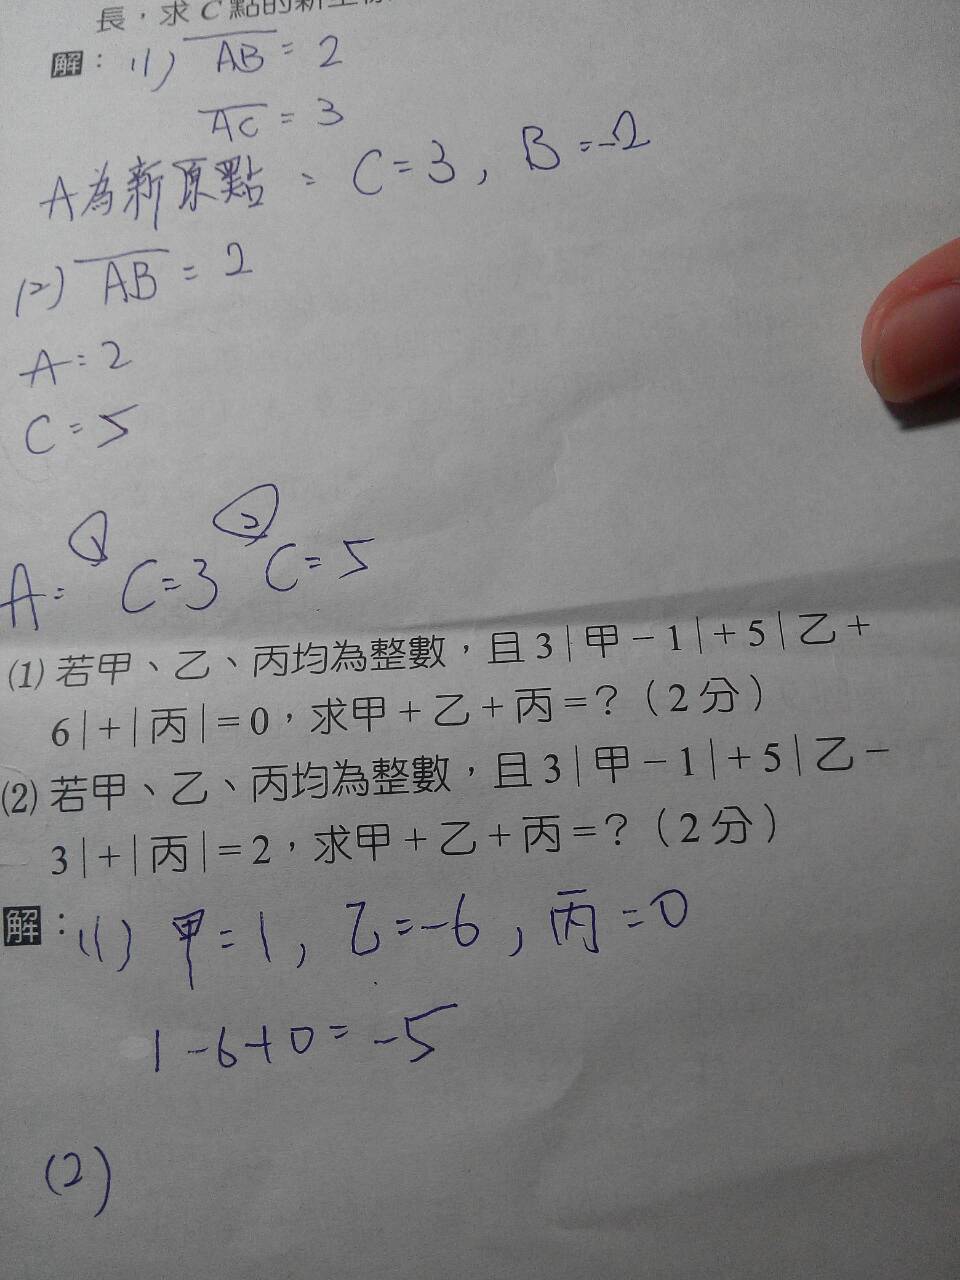 長，求 C 點的新坐標
解：(1) AB = 2
AC = 3
A為新原點 = C=3, B=-2
(2) AB = 2
A=2
C=5
A= ① C=3 ② C=5
(1) 若甲、乙、丙均為整數，且 3|甲－1|＋5|乙＋
6|＋|丙|＝0，求甲＋乙＋丙＝？（2 分）
(2) 若甲、乙、丙均為整數，且 3|甲－1|＋5|乙－
3|＋|丙|＝2，求甲＋乙＋丙＝？（2 分）
解：(1) 甲=1, 乙=-6, 丙=0
1-6+0=-5
(2)